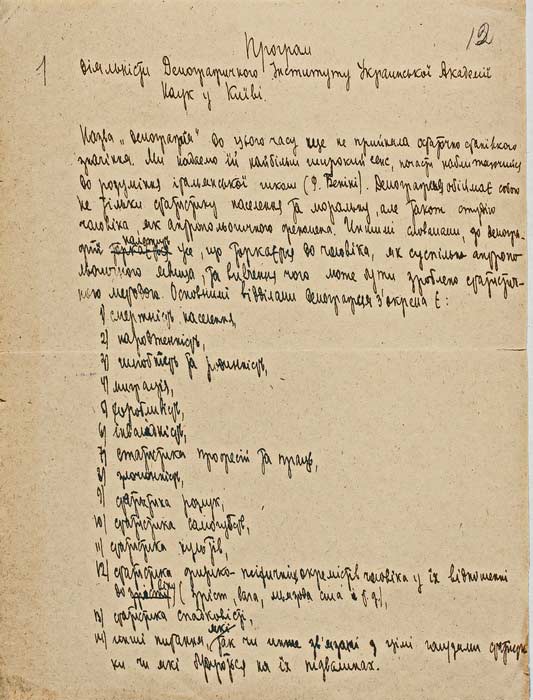 12
1
Програм
діяльністи Демографичного Інституту Украинської Академії
Наук у Київі.
Назва „демографія" до цього часу ще не прийняла остаточно сталівкого
значіння. Ми надаємо їй найбільш широкий сенс, почасти наближаючись
до розуміння італьянської школи (Р. Беніні). Демографія обіймає собою
не тільки статистику населення та моральну, але також студію
чоловіка як антропольогичного феномена. Иншими словами, до демогра-
фії належить усе, що торкаєтся до чоловіка, як суспільно антропо-
льогичного явища, та вивчення чого може бути зроблено статистич-
ного методою. Основними відділами демографія з'окрема є:
1) смертність населення,
2) народженність,
3) шлюбність та родинність,
4) миграція,
5) хоробливість,
6) інвалідність,
7) статистика професій та праці,
8) злочинність,
9) статистика розлук,
10) статистика самогубств,
11) статистика культів,
12) статистика физико-психичніх окремістів чоловіка у їх відношенні
до віку (зріст, вага, мьязова сила и т. д.),
13) статистика спадковісті,
14) инші питання, які так чи инше зв'язані з цімі галузями статисти-
ки чи які будуються на їх підвалинах.